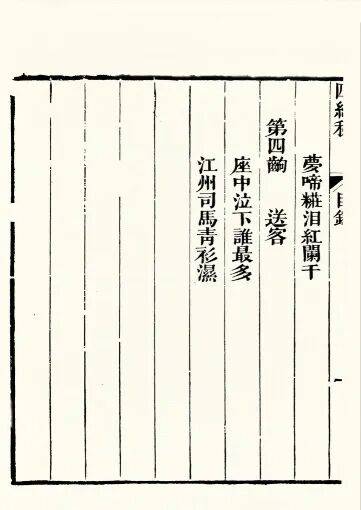 四絃秋 目錄 一
夢啼糚泪紅闌干
第四齣 送客
座中泣下誰最多
江州司馬青衫濕